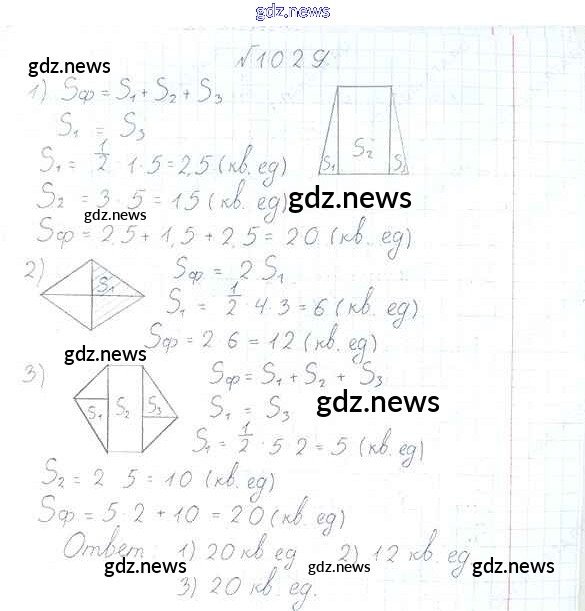 gdz.news
№1029
gdz.news
1) Sф = S1 + S2 + S3
S1 = S3
S1 = 1/2 · 1 · 5 = 2,5 (кв. ед)
S2 = 3 · 5 = 15 (кв. ед)
gdz.news
gdz.news
Sф = 2,5 + 1,5 + 2,5 = 20 (кв. ед)
S1 S2 S3
2) S1
Sф = 2 S1
S1 = 1/2 · 4 · 3 = 6 (кв. ед)
Sф = 2 · 6 = 12 (кв. ед)
gdz.news
3) S1 S2 S3
Sф = S1 + S2 + S3
gdz.news
S1 = S3
S1 = 1/2 · 5 2 = 5 (кв. ед)
S2 = 2 5 = 10 (кв. ед)
Sф = 5 · 2 + 10 = 20 (кв. ед)
Ответ: 1) 20 кв ед 2) 12 кв. ед
gdz.news gdz.news gdz.news
3) 20 кв. ед.